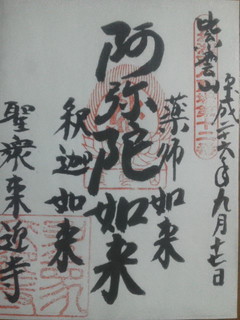 紫雲山
平成二十六年九月十七日
薬師如来
阿弥陀如来
釈迦如来
聖衆来迎寺